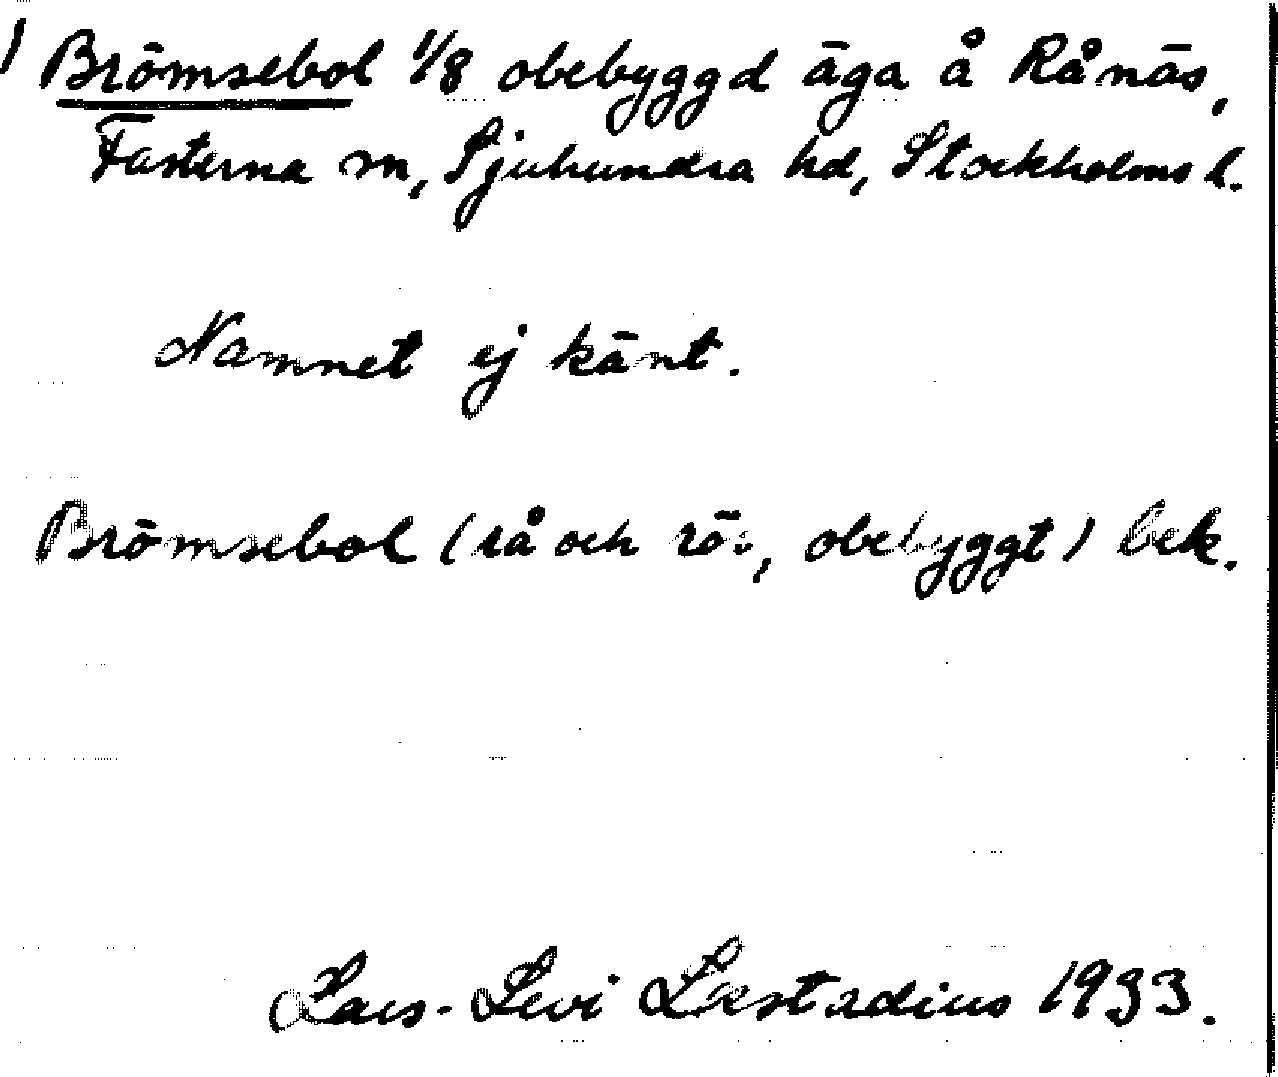 Brömsebol 1/8 obebyggd äga å Rånäs,
Fasterna sn, Sjuhundra hd, Stockholms l.
Namnet ej känt.
Brömsebol (rå och rör, obebyggt) bek.
Lars-Levi Læstadius 1933.